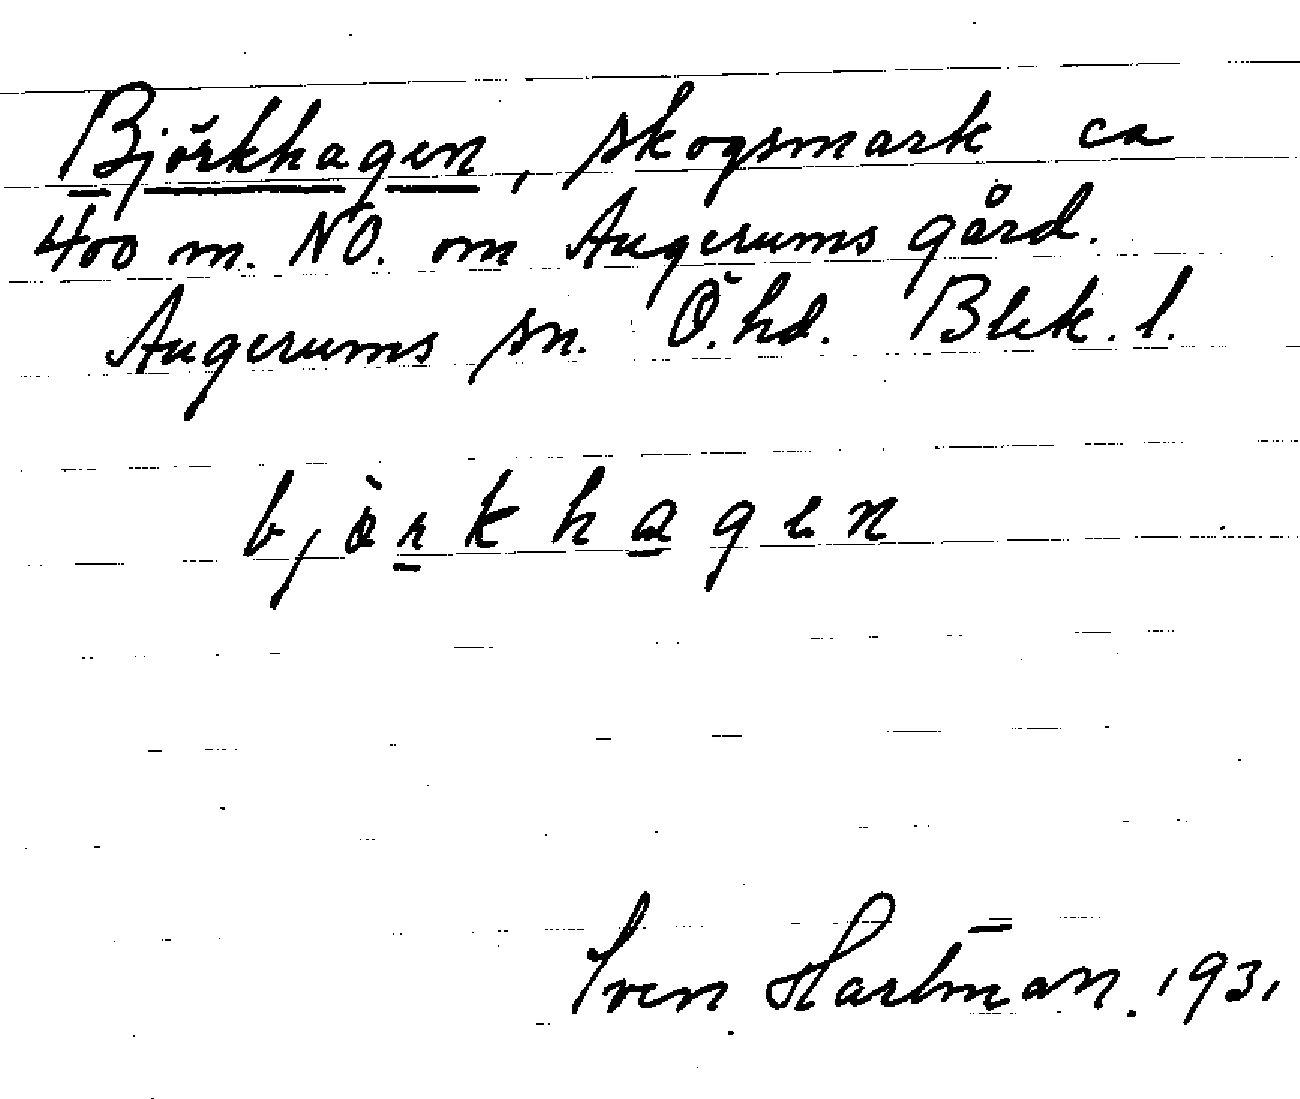 Björkhagen, skogsmark ca
400 m. NO. om Augerums gård.
Augerums sn. Ö. hd. Blek. l.
björkhagen
Sven Hartman. 1931